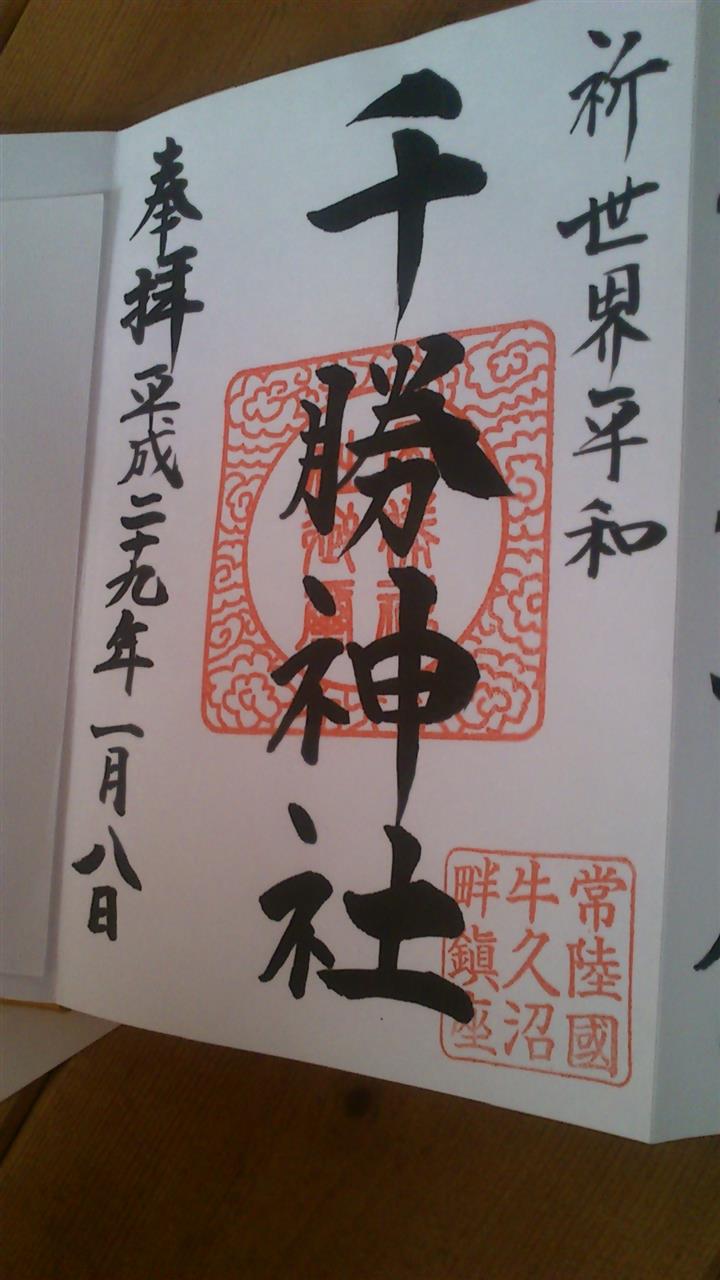 祈世界平和
千勝神社
奉拝平成二十九年一月八日
常陸國
牛久沼
畔鎮座